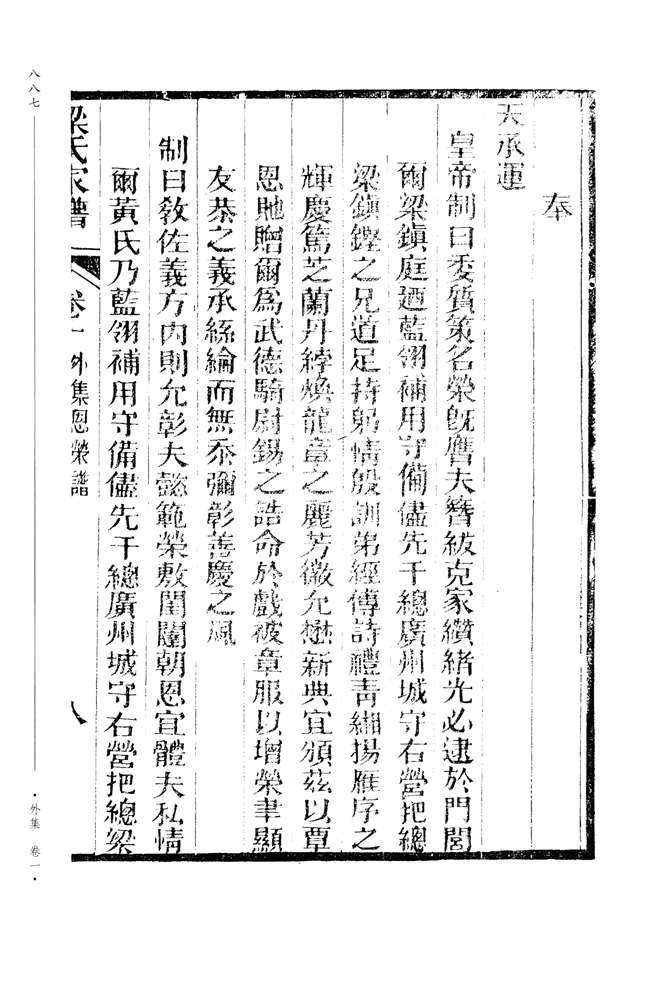 奉
天承運
皇帝制曰委質策名榮旣膺夫簪紱克家纘緖光必逮於門閭
爾梁鎭庭廼藍翎補用守備儘先千總廣州城守右營把總
梁鎭鏗之兄道足持躬情殷訓弟經傳詩禮靑緗揚雁序之
輝慶篤芝蘭丹綍煥龍章之麗芳徽允懋新典宜頒茲以覃
恩貤贈爾爲武德騎尉錫之誥命於戲被章服以增榮聿顯
友恭之義承絲綸而無忝彌彰善慶之風
制曰敎佐義方內則允彰夫懿範榮敷閨闥朝恩宜體夫私情
爾黃氏乃藍翎補用守備儘先千總廣州城守右營把總梁
梁氏家譜 卷一 外集恩榮譜 八
八八七
·外集 卷一·